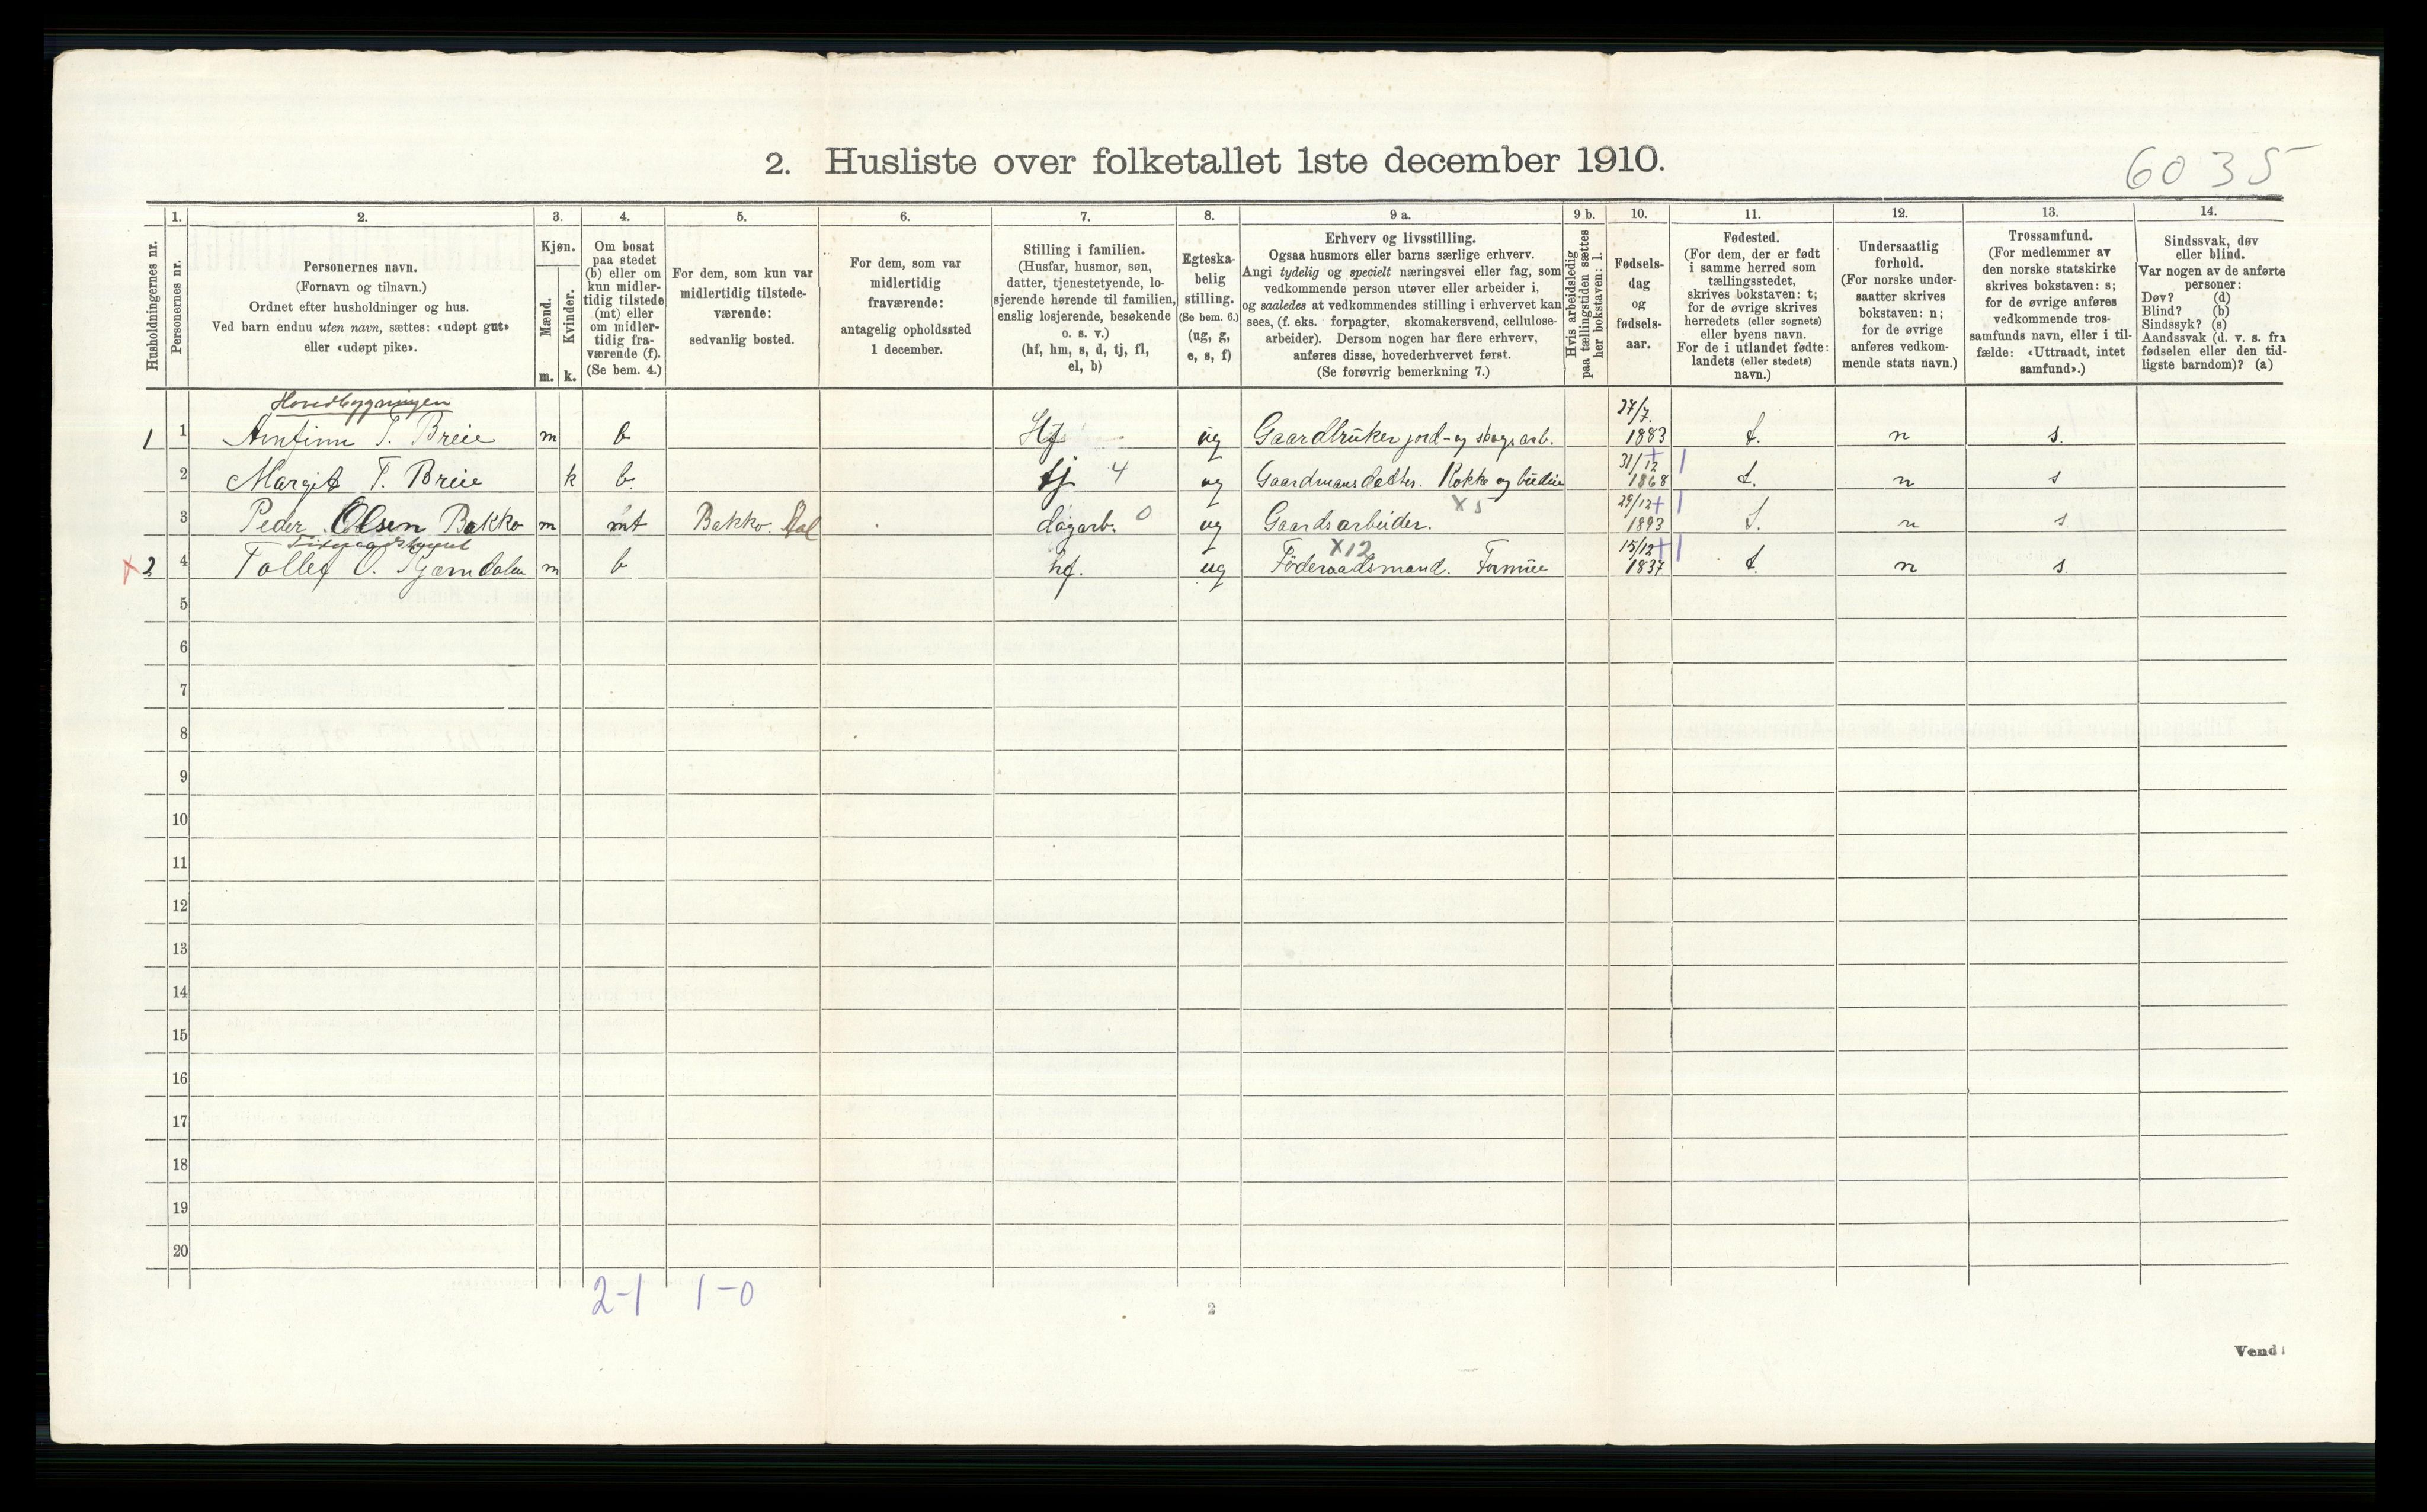 2. Husliste over folketallet 1ste december 1910.
6035
Husholdningernes nr.
1.
Personernes nr.
2.
Personernes navn.
(Fornavn og tilnavn.)
Ordnet efter husholdninger og hus.
Ved barn endnu uten navn, sættes: «udøpt gut»
eller «udøpt pike».
3.
Kjøn.
Mænd.
Kvinder.
m. k.
4.
Om bosat
paa stedet
(b) eller om
kun midler-
tidig tilstede
(mt) eller
om midler-
tidig fra-
værende (f).
(Se bem. 4.)
5.
For dem, som kun var
midlertidig tilstede-
værende:
sedvanlig bosted.
6.
For dem, som var
midlertidig
fraværende:
antagelig opholdssted
1 december.
7.
Stilling i familien.
(Husfar, husmor, søn,
datter, tjenestetyende, lo-
sjerende hørende til familien,
enslig losjerende, besøkende
o. s. v.)
(hf, hm, s, d, tj, fl,
el, b)
8.
Egteska-
belig
stilling.
(Se bem. 6.)
(ug, g,
e, s, f)
9 a.
Erhverv og livsstilling.
Ogsaa husmors eller barns særlige erhverv.
Angi tydelig og specielt næringsvei eller fag, som
vedkommende person utøver eller arbeider i,
og saaledes at vedkommendes stilling i erhvervet kan
sees, (f. eks. forpagter, skomakersvend, cellulose-
arbeider). Dersom nogen har flere erhverv,
anføres disse, hovederhvervet først.
(Se forøvrig bemerkning 7.)
9 b.
Hvis arbeidsledig
paa tællingstiden sættes
her bokstaven: l.
10.
Fødsels-
dag
og
fødsels-
aar.
11.
Fødested.
(For dem, der er født
i samme herred som
tællingsstedet,
skrives bokstaven: t;
for de øvrige skrives
herredets (eller sognets)
eller byens navn.
For de i utlandet fødte:
landets (eller stedets)
navn.)
12.
Undersaatlig
forhold.
(For norske under-
saatter skrives
bokstaven: n;
for de øvrige
anføres vedkom-
mende stats navn.)
13.
Trossamfund.
(For medlemmer av
den norske statskirke
skrives bokstaven: s;
for de øvrige anføres
vedkommende tros-
samfunds navn, eller i til-
fælde: «Uttraadt, intet
samfund».)
14.
Sindssvak, døv
eller blind.
Var nogen av de anførte
personer:
Døv? (d)
Blind? (b)
Sindssyk? (s)
Aandssvak (d. v. s. fra
fødselen eller den tid-
ligste barndom)? (a)
Hovedbygningen
1 1 Arnfinn T. Breie m b Hf ug Gaardbruker jord- og skogsarb. 27/7. 1883 t. n s.
2 Margit T. Breie k b. tj 4 ug Gaardmansdatter. Kokke og budeie 31/12 1868 t. n s
3 Peder Olsen Bakko m mt Bakko. Aal dagarb. 0 ug Gaardsarbeider. X 5 29/12 1893 t. n s
4
2 Tollef O. m b hf. ug Föderaadsmand. Formue X12 15/12 1837 t. n s.
5
6
7
8
9
10
11
12
13
14
15
16
17
18
19
20
2-1 1-0
2
Vend!